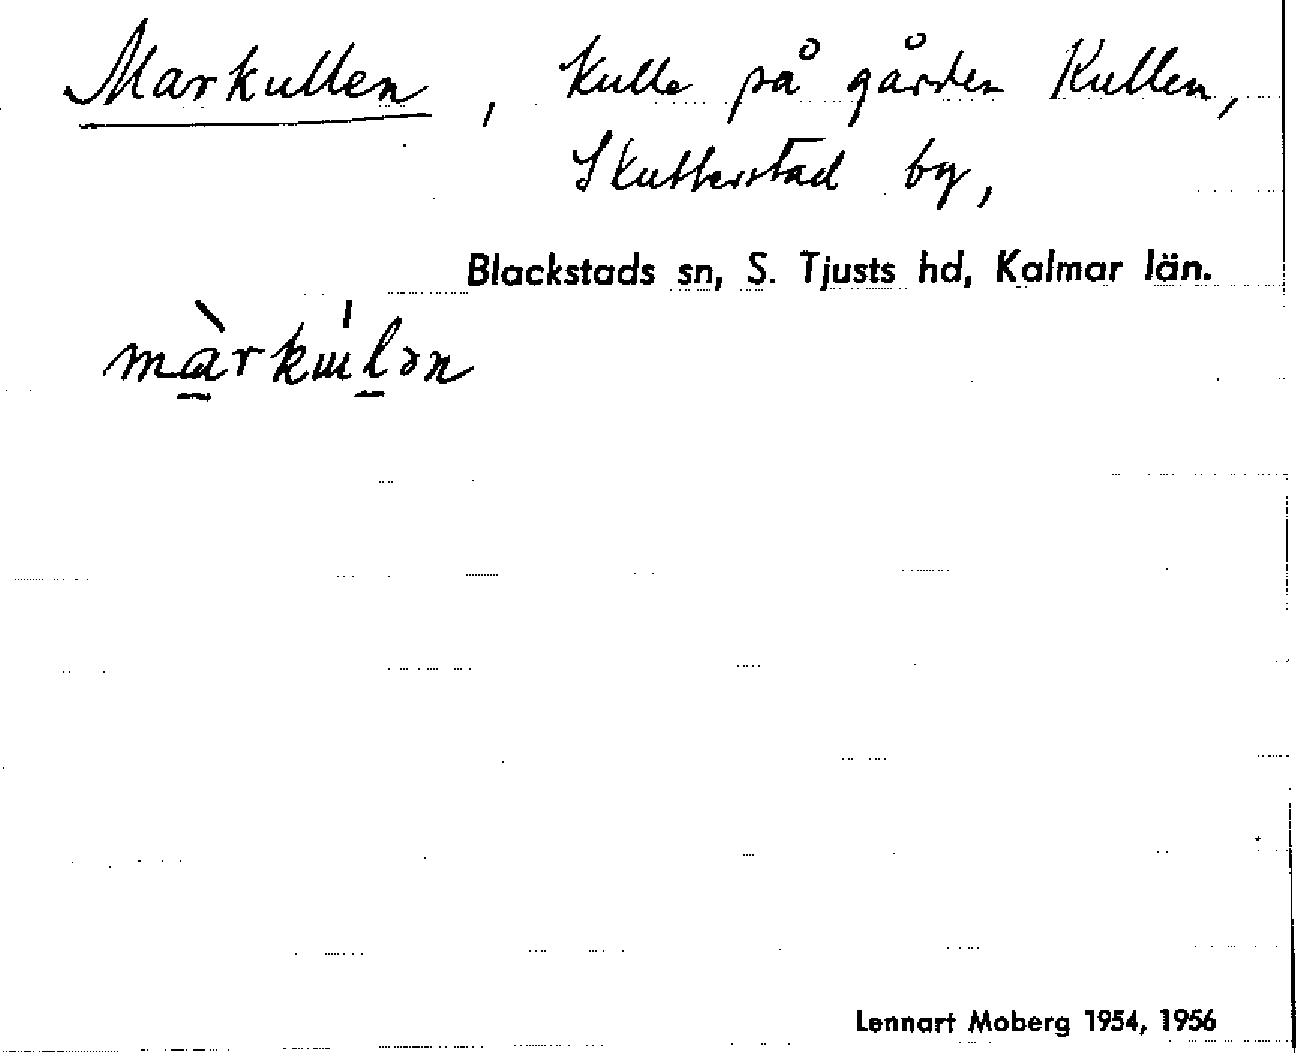 Markullen, kulle på gården Kullen,
Skutterstad by,
Blackstads sn, S. Tjusts hd, Kalmar län.
màrkɯ́lən
Lennart Moberg 1954, 1956